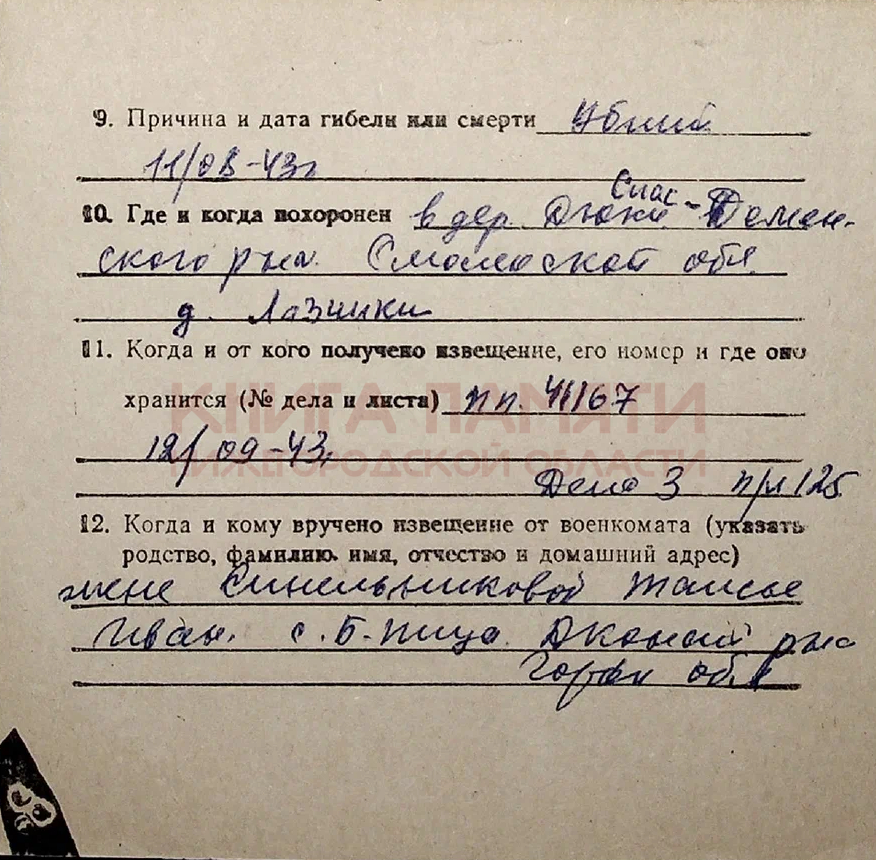 9. Причина и дата гибели или смерти Убит
11/08-43г
Спас
10. Где и когда похоронен в дер Дюки - Демен-
ского р-на. Смоленской обл.
д. Лазинки
11. Когда и от кого получено извещение, его номер и где оно
КНИГА ПАМЯТИ
хранится (№ дела и листа) пп. 41167
12/09-43г
НИЖЕГОРОДСКОЙ ОБЛАСТИ
Дело 3 125
12. Когда и кому вручено извещение от военкомата (указать
родство, фамилию, имя, отчество и домашний адрес)
жене Синельниковой Таисье
Иван. с. Б-пица р-на
Горьк обл